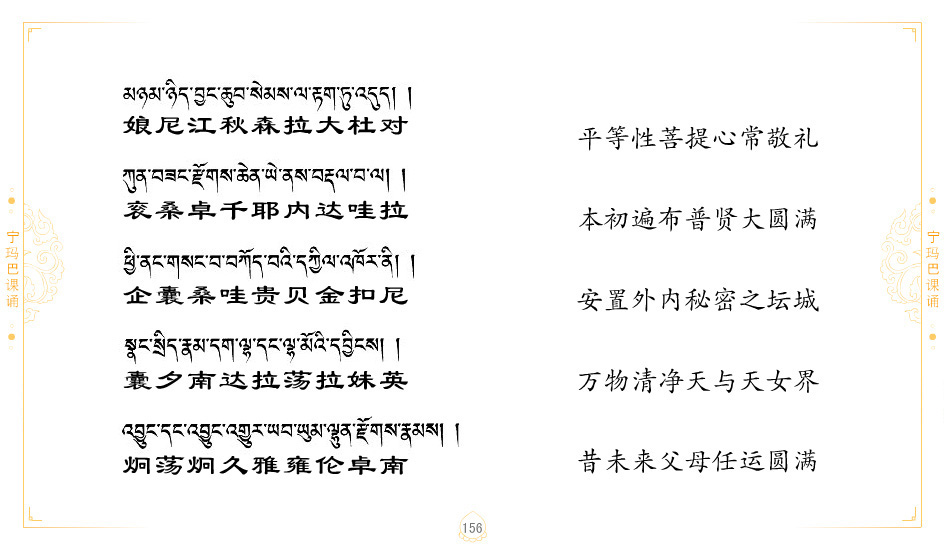 མཉམ་ཉིད་བྱང་ཆུབ་སེམས་ལ་རྟག་ཏུ་འདུད། །
娘尼江秋森拉大杜对
平等性菩提心常敬礼
ཀུན་བཟང་རྫོགས་ཆེན་ཡེ་ནས་བརྡལ་བ་ལ། །
衮桑卓千耶内达哇拉
本初遍布普贤大圆满
ཕྱི་ནང་གསང་བ་བཀོད་པའི་དཀྱིལ་འཁོར་ནི། །
企囊桑哇贵贝金扣尼
安置外内秘密之坛城
སྣང་སྲིད་རྣམ་དག་ལྷ་དང་ལྷ་མོའི་དབྱིངས། །
囊夕南达拉荡拉妹英
万物清净天与天女界
འབྱུང་དང་འབྱུང་འགྱུར་ཡབ་ཡུམ་ལྷུན་རྫོགས་རྣམས། །
炯荡炯久雅雍伦卓南
昔未来父母任运圆满
宁玛巴课诵
宁玛巴课诵
156